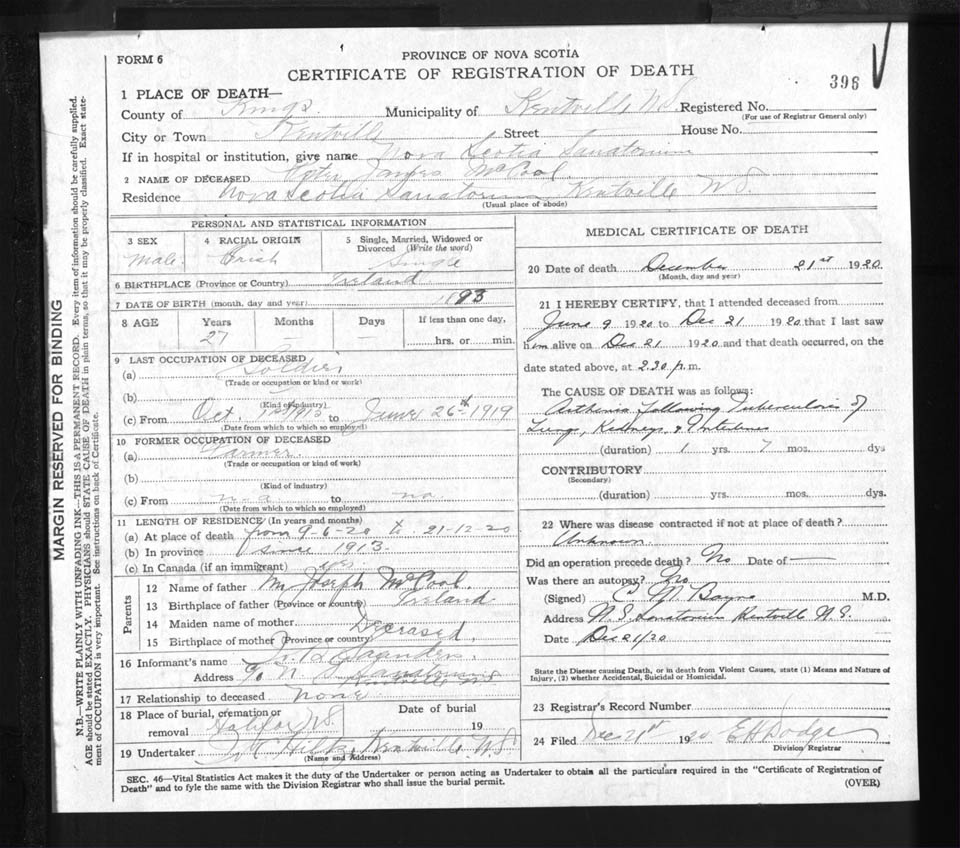 FORM 6
PROVINCE OF NOVA SCOTIA
CERTIFICATE OF REGISTRATION OF DEATH
396
1 PLACE OF DEATH—
County of Kings Municipality of Kentville N.S. Registered No.
(For use of Registrar General only)
City or Town Kentville Street House No.
If in hospital or institution, give name Nova Scotia Sanatorium
2 NAME OF DECEASED James McCool
Residence Nova Scotia Sanatorium Kentville N.S.
(Usual place of abode)
PERSONAL AND STATISTICAL INFORMATION
3 SEX 4 RACIAL ORIGIN 5 Single, Married, Widowed or Divorced (Write the word)
Male Irish Single
6 BIRTHPLACE (Province or Country) Ireland
7 DATE OF BIRTH (month, day and year) 1893
8 AGE Years Months Days If less than one day,
27 — — hrs. or min.
9 LAST OCCUPATION OF DECEASED
(a) Soldier
(Trade or occupation or kind or work)
(b)
(Kind of industry)
(c) From Oct. to June 26th 1919
(Date from which to which so employed)
10 FORMER OCCUPATION OF DECEASED
(a) Farmer
(Trade or occupation or kind of work)
(b)
(Kind of industry)
(c) From to
(Date from which to which so employed)
11 LENGTH OF RESIDENCE (In years and months)
(a) At place of death from 9-6-20 to 21-12-20
(b) In province since 1913
(c) In Canada (if an immigrant)
Parents
12 Name of father Joseph McCool
13 Birthplace of father (Province or country) Ireland
14 Maiden name of mother Deceased
15 Birthplace of mother (Province or country)
16 Informant's name Saunders
Address c/o N.S. Sanatorium
Kentville N.S.
17 Relationship to deceased none
18 Place of burial, cremation or removal Halifax N.S. Date of burial 19
19 Undertaker Kentville N.S.
(Name and Address)
MEDICAL CERTIFICATE OF DEATH
20 Date of death December 21st 1920
(Month, day and year)
21 I HEREBY CERTIFY, that I attended deceased from
June 9 1920 to Dec 21 1920 that I last saw
him alive on Dec 21 1920 and that death occurred, on the
date stated above, at 2.30 p.m.
The CAUSE OF DEATH was as follows:
Asthenia following Tuberculosis of
Lungs, Kidneys & Intestines
(duration) 1 yrs. 7 mos. dys
CONTRIBUTORY
(Secondary)
(duration) yrs. mos. dys.
22 Where was disease contracted if not at place of death?
Unknown
Did an operation precede death? No Date of —
Was there an autopsy? No
(Signed) C M Bayne M.D.
Address N.S. Sanatorium Kentville N.S.
Date Dec 21/20
State the Disease causing Death, or in death from Violent Causes, state (1) Means and Nature of
Injury, (2) whether Accidental, Suicidal or Homicidal.
23 Registrar's Record Number
24 Filed Dec 21st 1920 E H Dodge
Division Registrar
SEC. 46—Vital Statistics Act makes it the duty of the Undertaker or person acting as Undertaker to obtain all the particulars required in the "Certificate of Registration of
Death" and to fyle the same with the Division Registrar who shall issue the burial permit. (OVER)
MARGIN RESERVED FOR BINDING
N.B.—WRITE PLAINLY WITH UNFADING INK—THIS IS A PERMANENT RECORD. Every item of information should be carefully supplied.
AGE should be stated EXACTLY. PHYSICIANS should STATE CAUSE OF DEATH in plain terms, so that it may be properly classified. Exact state-
ment of OCCUPATION is very important. See instructions on back of Certificate.